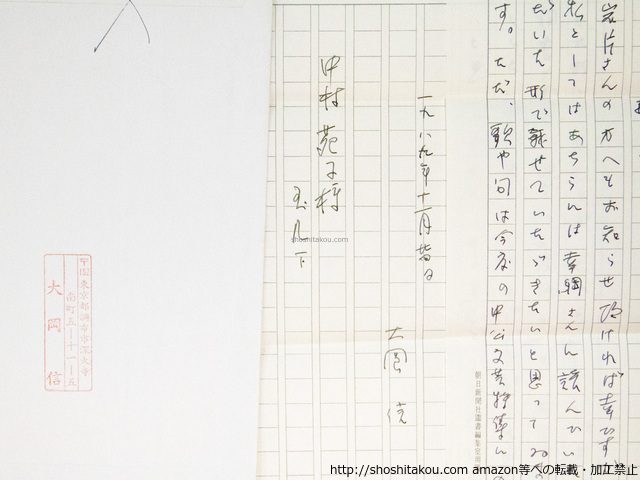 岩片さんの方へもお知らせ頂ければ幸です
私としてはあちらには幸綱さんに詠んでい
だいた形で載せていただきたいと思って
す。ただ、歌や句は今度の中公文芸特集に
一九八九年十一月
大岡 信
中村苑子様
玉几下
朝日新聞社図書編集室用
〒国東京都調布市深大寺
南町五ー十一ー五
大岡信
shoshitakou.com
http://shoshitakou.com amazon等への転載・加工禁止